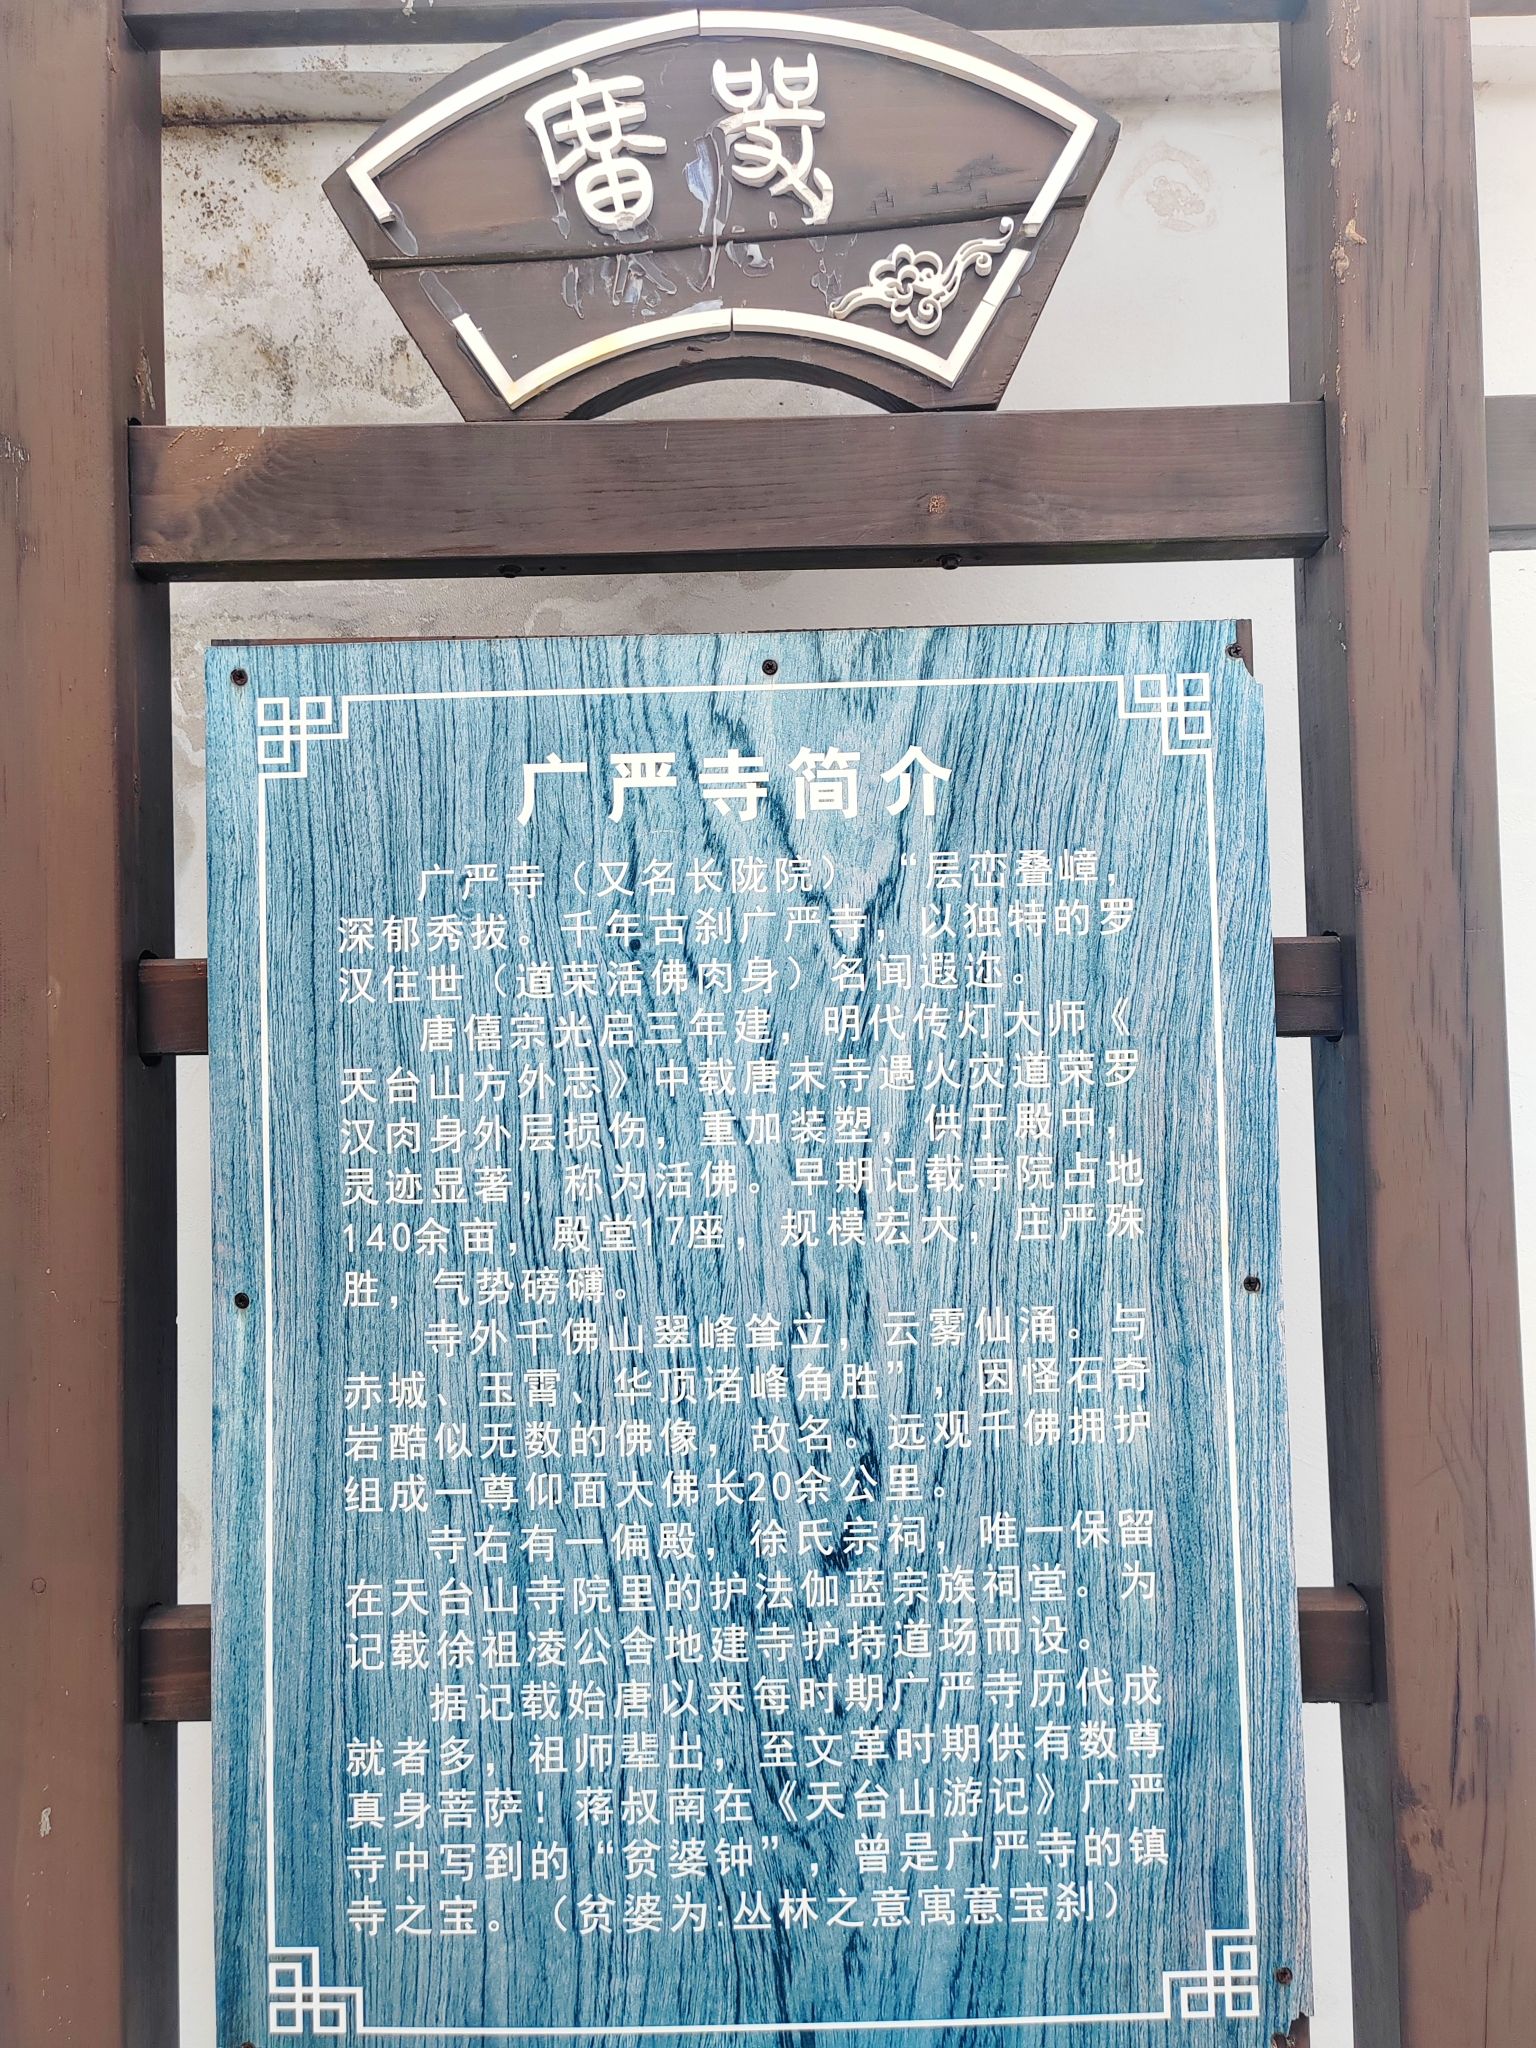 廣嚴
广严寺简介
广严寺（又名长陇院）“层峦叠嶂，
深郁秀拔。千年古刹广严寺，以独特的罗
汉住世（道荣活佛肉身）名闻遐迩。
唐僖宗光启三年建，明代传灯大师《
天台山方外志》中载唐末寺遇火灾道荣罗
汉肉身外层损伤，重加装塑，供于殿中，
灵迹显著，称为活佛。早期记载寺院占地
140余亩，殿堂17座，规模宏大，庄严殊
胜，气势磅礴。
寺外千佛山翠峰耸立，云雾仙涌。与
赤城、玉霄、华顶诸峰角胜”，因怪石奇
岩酷似无数的佛像，故名。远观千佛拥护
组成一尊仰面大佛长20余公里。
寺右有一偏殿，徐氏宗祠，唯一保留
在天台山寺院里的护法伽蓝宗族祠堂。为
记载徐祖凌公舍地建寺护持道场而设。
据记载始唐以来每时期广严寺历代成
就者多，祖师辈出，至文革时期供有数尊
真身菩萨！蒋叔南在《天台山游记》广严
寺中写到的“贫婆钟”，曾是广严寺的镇
寺之宝。（贫婆为:丛林之意寓意宝刹）